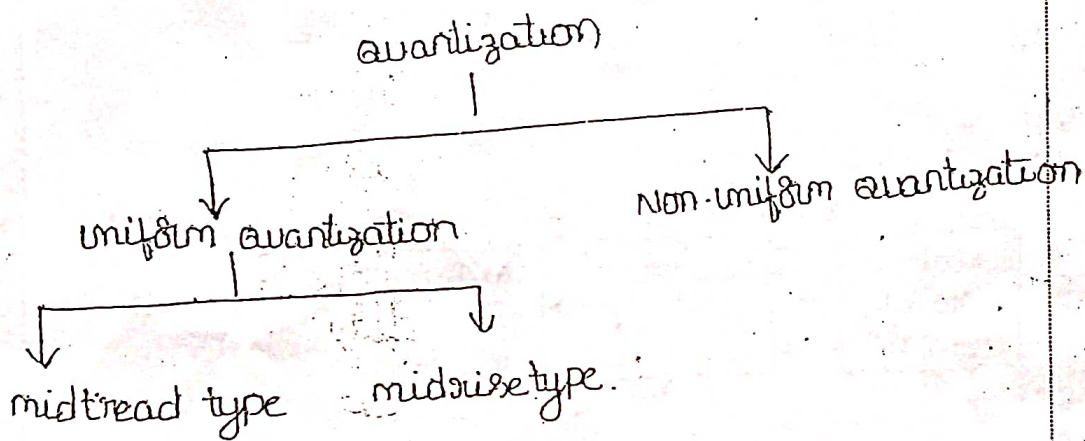 Quantization
uniform Quantization
Non-uniform Quantization
midtread type
midrise type.